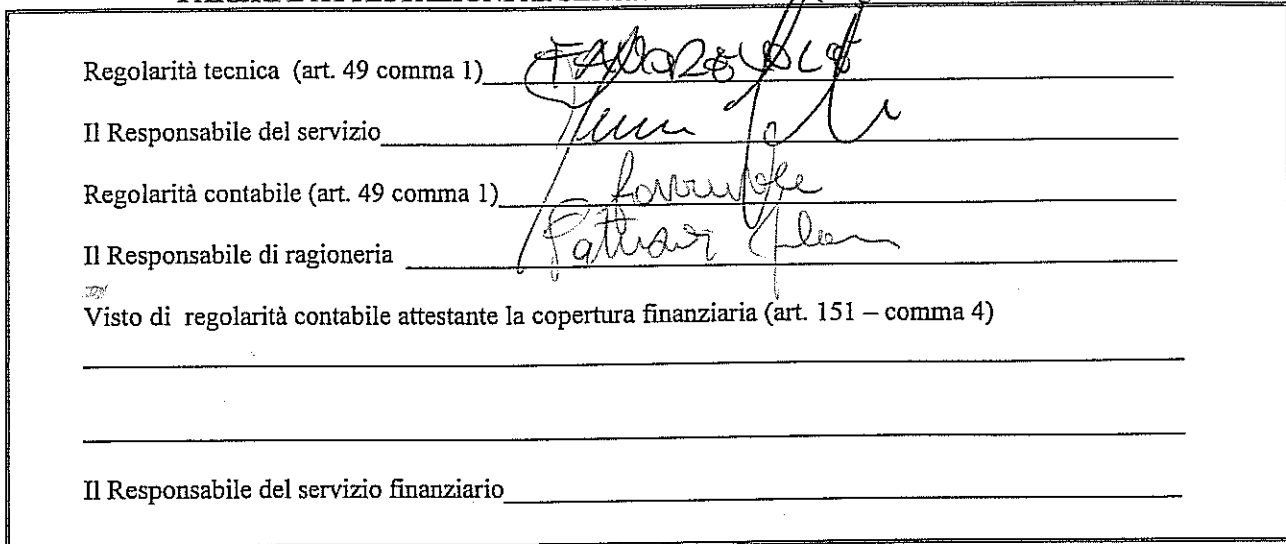 Regolarità tecnica (art. 49 comma 1) FAVOREVOLE
Il Responsabile del servizio
Regolarità contabile (art. 49 comma 1) favorevole
Il Responsabile di ragioneria
Visto di regolarità contabile attestante la copertura finanziaria (art. 151 – comma 4)
Il Responsabile del servizio finanziario